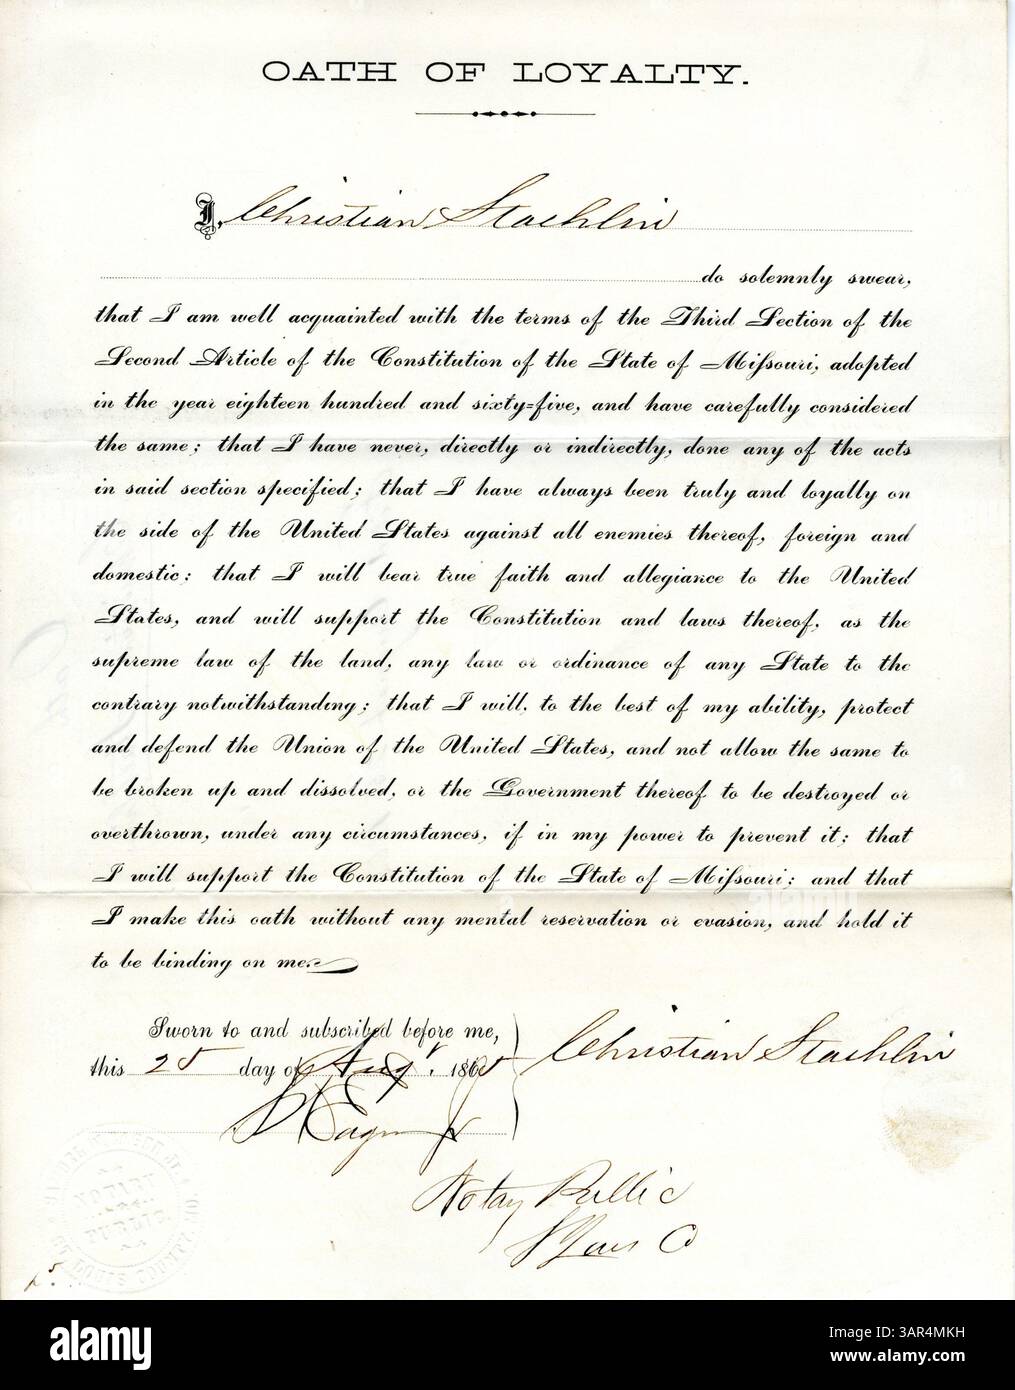 OATH OF LOYALTY.
I, Christian Staehlin
do solemnly swear,
that I am well acquainted with the terms of the Third Section of the
Second Article of the Constitution of the State of Missouri, adopted
in the year eighteen hundred and sixty-five, and have carefully considered
the same; that I have never, directly or indirectly, done any of the acts
in said section specified; that I have always been truly and loyally on
the side of the United States against all enemies thereof, foreign and
domestic; that I will bear true faith and allegiance to the United
States, and will support the Constitution and laws thereof, as the
supreme law of the land, any law or ordinance of any State to the
contrary notwithstanding; that I will, to the best of my ability, protect
and defend the Union of the United States, and not allow the same to
be broken up and dissolved, or the Government thereof to be destroyed or
overthrown, under any circumstances, if in my power to prevent it; that
I will support the Constitution of the State of Missouri; and that
I make this oath without any mental reservation or evasion, and hold it
to be binding on me.
Sworn to and subscribed before me,
this 25 day of Augt. 1865
Christian Staehlin
Notary Public
St Louis Co
NOTARY
PUBLIC
ST LOUIS COUNTY
alamy
Image ID: 3AR4MKH
www.alamy.com